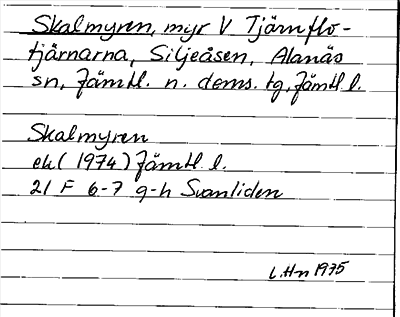 Skalmyren, myr V Tjärnflo-
tjärnarna, Siljeåsen, Alanäs
sn, Jämtl. n. doms. tg, Jämtl. l.
Skalmyren
ek (1974) Jämtl. l.
21 F 6-7 g-h Svanliden
L.Hn 1975